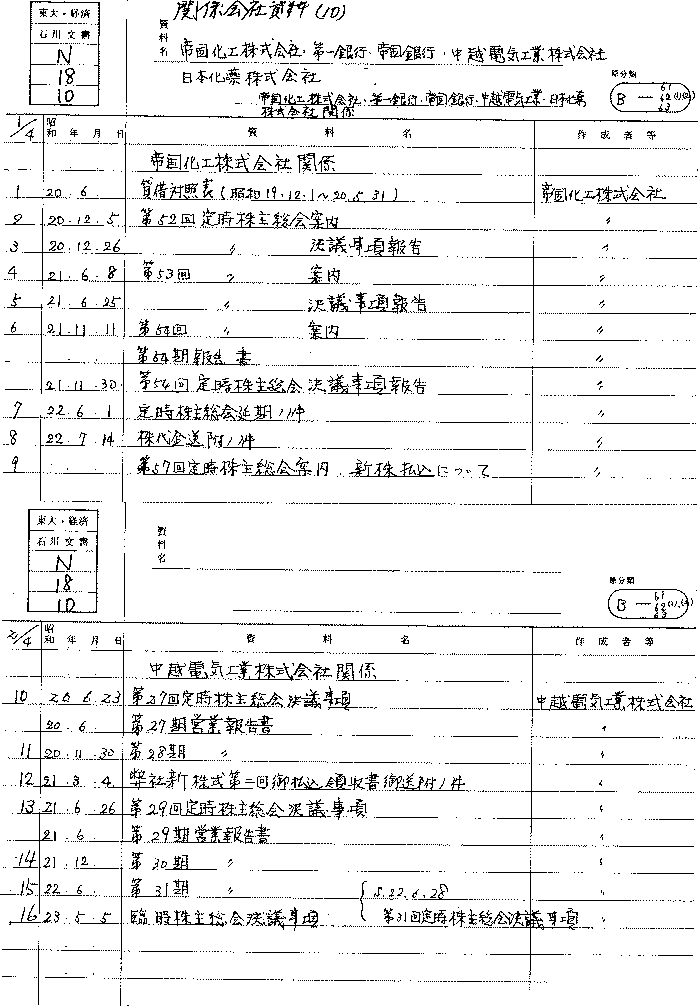 関係会社資料(10)
東大・経済
石川文書
N
18
10
資料名
帝国化工株式会社・第一銀行・帝国銀行・中越電気工業株式会社
日本化薬株式会社
帝国化工株式会社・第一銀行・帝国銀行・中越電気工業・日本化薬
株式会社関係
原分類
B — 61 62(1)(2) 63
1/4 昭和 年 月 日 資料名 作成者等
帝国化工株式会社関係
1 20.6. 貸借対照表(昭和19.12.1~20.5.31) 帝国化工株式会社
2 20.12.5 第52回定時株主総会案内 〃
3 20.12.26 〃 決議事項報告 〃
4 21.6.8 第53回 〃 案内 〃
5 21.6.25 〃 決議事項報告 〃
6 21.11.11 第54回 〃 案内 〃
第54期報告書 〃
21.11.30 第54回定時株主総会決議事項報告 〃
7 22.6.1 定時株主総会延期ノ件 〃
8 22.7.14 株代金送附ノ件 〃
9 第57回定時株主総会案内.新株払込について 〃
東大・経済
石川文書
N
18
10
資料名
原分類
B — 61 62(1),(2) 63
2/4 昭和 年 月 日 資料名 作成者等
中越電気工業株式会社関係
10 20.6.23 第27回定時株主総会決議事項 中越電気工業株式会社
20.6. 第27期営業報告書 〃
11 20.11.30 第28期 〃 〃
12 21.3.4 弊社新株式第二回御払込領収書御送附ノ件 〃
13 21.6.26 第29回定時株主総会決議事項 〃
21.6 第29期営業報告書 〃
14 21.12. 第30期 〃 〃
15 22.6. 第31期 〃 S.22.6.28 〃
16 23.5.5 臨時株主総会決議事項 第31回定時株主総会決議事項 〃